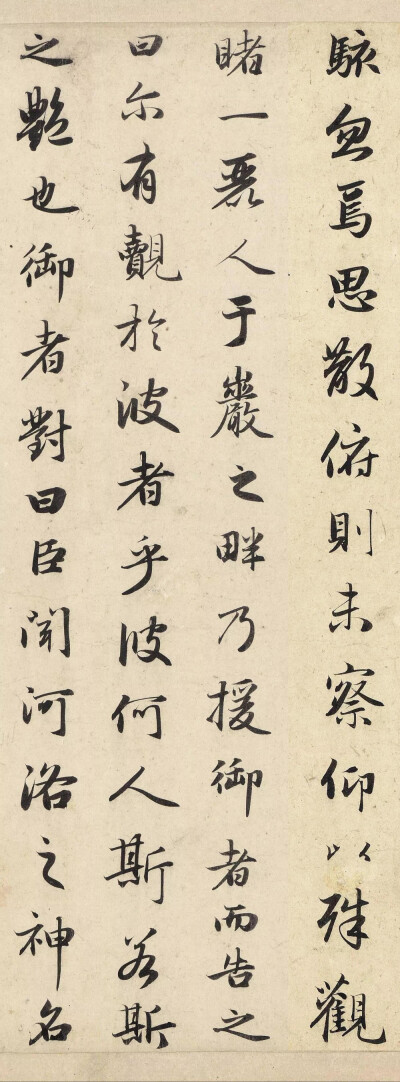 駭忽焉思散俯則未察仰以殊觀
睹一麗人于巖之畔乃援御者而告之
曰尓有覿於彼者乎彼何人斯若斯
之艷也御者對曰臣聞河洛之神名